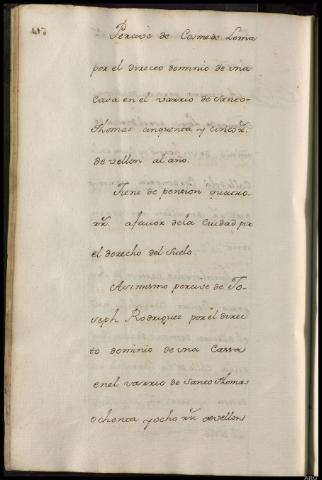 Percivo de Cosme de Loma
por el directo dominio de una
casa en el varrio de Santo
Thomas cinquenta y cinco rs.
de vellon al año.
Tiene de pension quatro
rrs. a favor de la ciudad por
el derecho del suelo
Assimismo percivo de Jo-
seph Rodriguez por el direc-
to dominio de una Cassa
en el varrio de Santo Thomas
ochenta y ocho rrs. de vellon